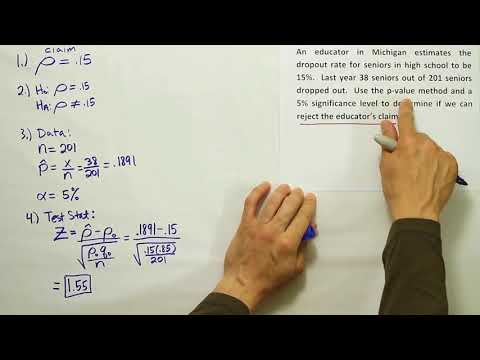 claim
1.) ρ = .15
2.) H₀: ρ = .15
Hₐ: ρ ≠ .15
3.) Data:
n = 201
p̂ = x/n = 38/201 = .1891
α = 5%
4.) Test Stat:
Z = p̂ - ρ₀ / √(ρ₀ q₀ / n) = .1891 - .15 / √(.15(.85) / 201)
= 1.55
An educator in Michigan estimates the
dropout rate for seniors in high school to be
15%. Last year 38 seniors out of 201 seniors
dropped out. Use the p-value method and a
5% significance level to determine if we can
reject the educator's claim